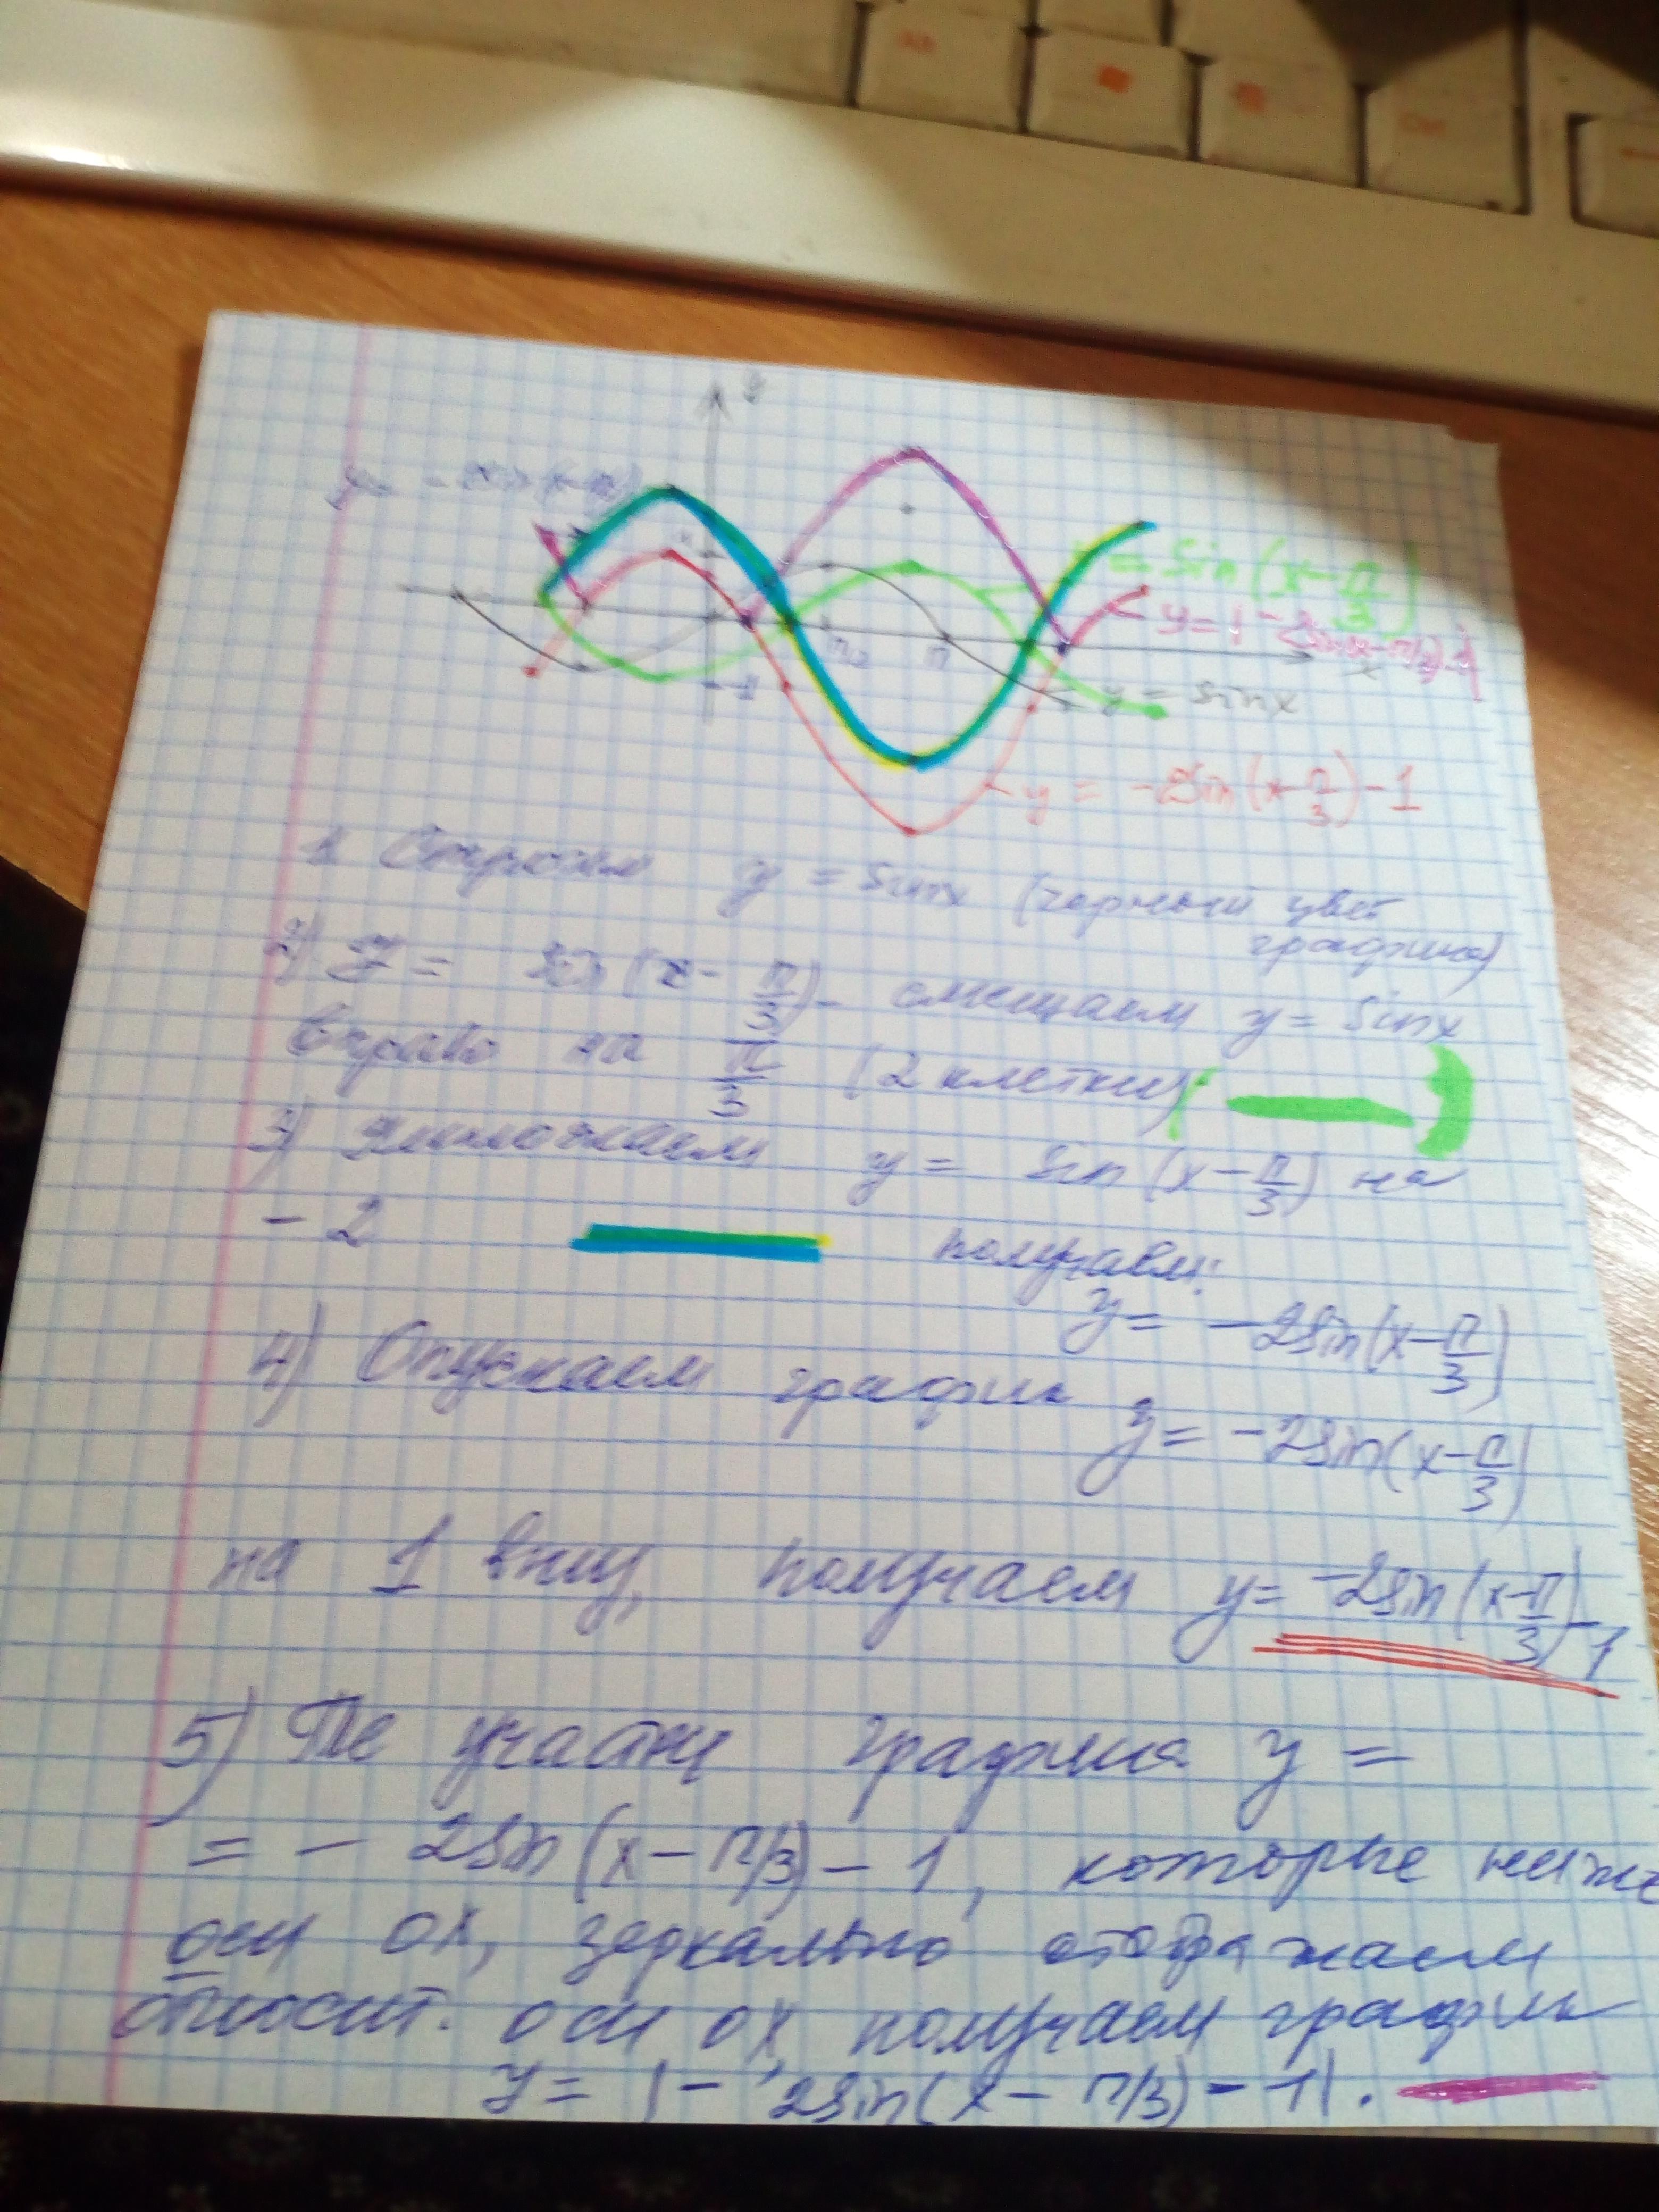 y
y = sin(x - π/3)
y = |-2sin(x-π/3)-1|
π/2
π
x
-1
y = sinx
y = -2sin(x-π/3)-1
1 Строим y = sinx (черный цвет
графика)
2) y = sin(x - π/3) - смещаем y = sinx
вправо на π/3 (2 клетки) ( )
3) Умножаем y = sin(x-π/3) на
-2 получаем:
y = -2sin(x-π/3)
4) Опускаем график
y = -2sin(x-π/3)
на 1 вниз, получаем y = -2sin(x-π/3)-1
5) Те участки графика y =
= - 2sin(x-π/3)-1, которые ниже
оси ox, зеркально отображаем
относит. оси ox, получаем график
y = |-2sin(x-π/3)-1|.